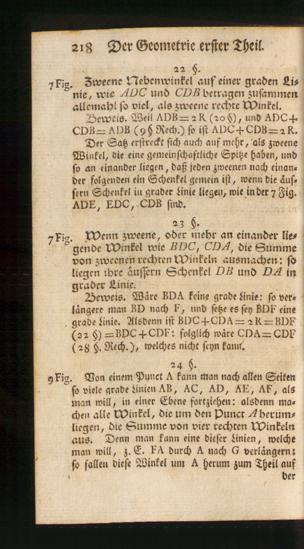 218 Der Geometrie erster Theil.
22 §.
7 Fig. Zweene Nebenwinkel auf einer graden Li-
nie, wie ADC und CDB betragen zusammen
allemahl so viel, als zweene rechte Winkel.
Beweis. Weil ADB = 2 R (20 §), und ADC +
CDB = ADB (9 § Rech.) so ist ADC + CDB = 2 R.
Der Satz erstreckt sich auch auf mehr, als zweene
Winkel, die eine gemeinschaftliche Spitze haben, und
so an einander liegen, daß jeden zweenen nach einan-
der folgenden ein Schenkel gemein ist, wenn die äuß-
sern Schenkel in grader Linie liegen, wie in der 7 Fig.
ADE, EDC, CDB sind.
23 §.
7 Fig. Wenn zweene, oder mehr an einander lie-
gende Winkel wie BDC, CDA, die Summe
von zweenen rechten Winkeln ausmachen: so
liegen ihre äussern Schenkel DB und DA in
grader Linie.
Beweis. Wäre BDA keine grade Linie: so ver-
längere man BD nach F, und setze es sey BDF eine
grade Linie. Alsdenn ist BDC + CDA = 2 R = BDF
(22 §) = BDC + CDF: folglich wäre CDA = CDF
(28 §. Rech.), welches nicht seyn kann.
24 §.
9 Fig. Von einem Punct A kann man nach allen Seiten
so viele grade Linien AB, AC, AD, AE, AF, als
man will, in einer Ebene fortziehen: alsdenn ma-
chen alle Winkel, die um den Punct A herum-
liegen, die Summe von vier rechten Winkeln
aus. Denn man kann eine dieser Linien, welche
man will, z. E. FA durch A nach G verlängern:
so fallen diese Winkel um A herum zum Theil auf
der